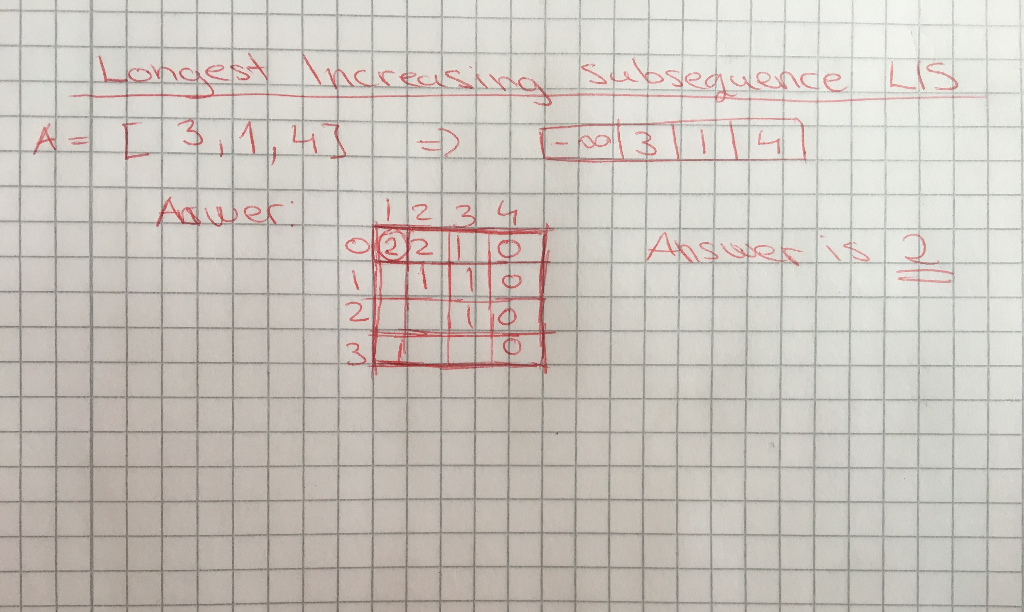 Longest Increasing Subsequence LIS
A = [ 3, 1, 4 ] => -∞ 3 1 4
Answer: 1 2 3 4
0 2 2 1 0 Answer is 2
1 1 1 0
2 1 0
3 1 0